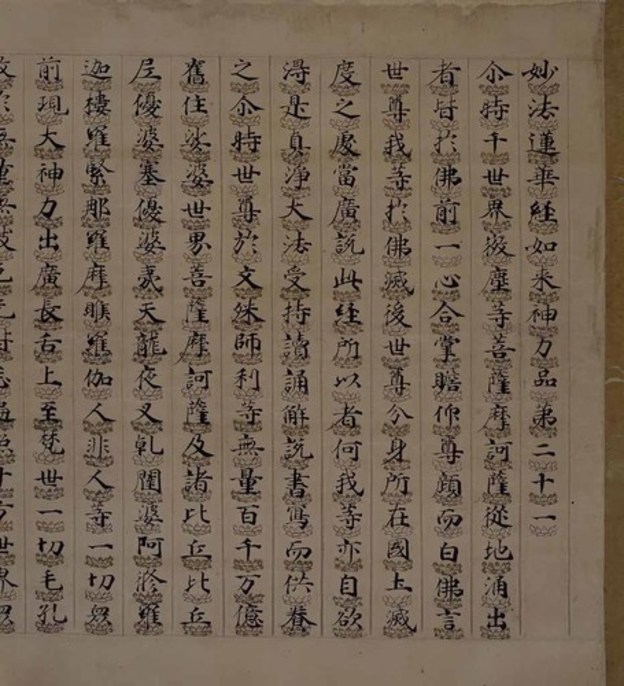 妙法蓮華経如来神力品苐二十一
尒時千世界㣲塵等菩薩摩訶薩從地涌出
者皆於佛前一心合掌瞻仰尊顔而白佛言
世尊我等於佛滅後世尊分身所在國土滅
度之處當廣説此経所以者何我等亦自欲
得是真淨大法受持讀誦解説書寫而供養
之尒時世尊於文殊師利等無量百千万億
舊住娑婆世界菩薩摩訶薩及諸比丘比丘
尼優婆塞優婆夷天龍夜叉乹闥婆阿脩羅
迦樓羅緊那羅摩睺羅伽人非人等一切衆
前現大神力出廣長舌上至梵世一切毛孔
放於無量無数色光皆悉遍照十方世界衆